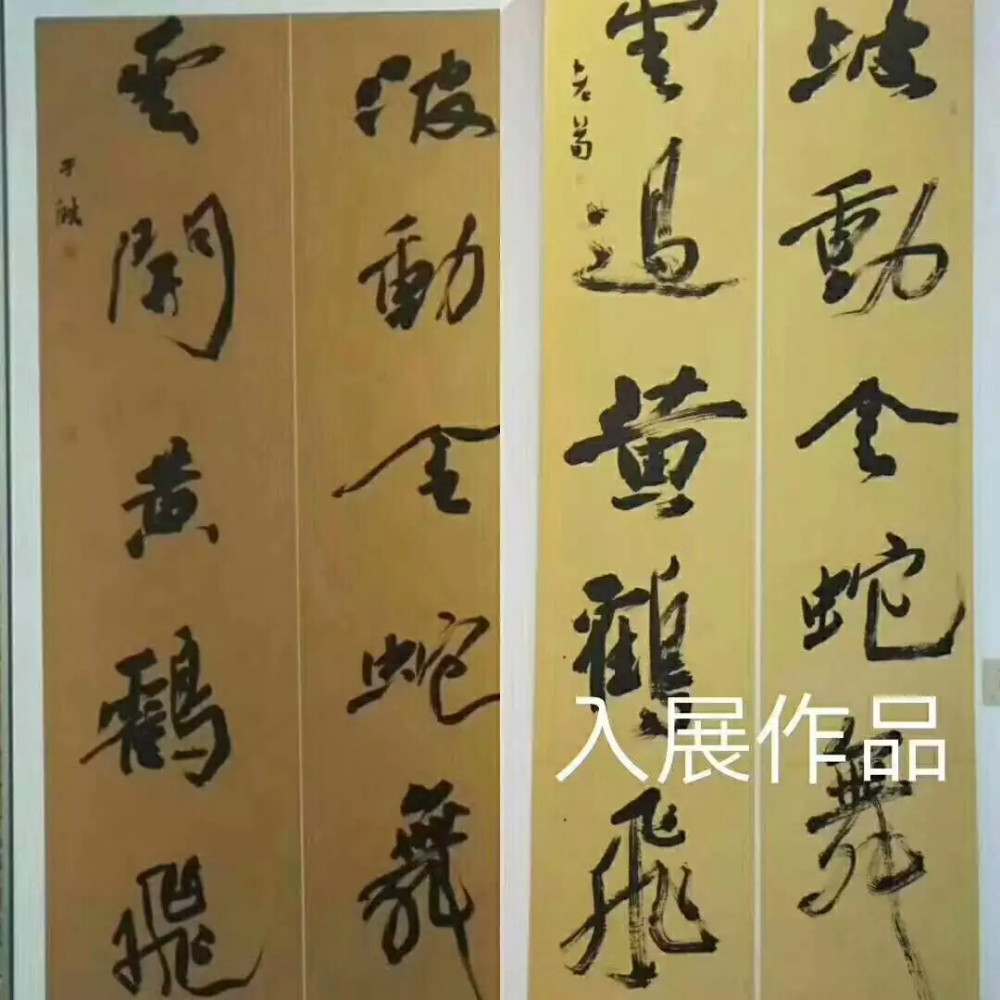 波動金蛇舞
雲開黃鶴飛
波動金蛇舞
雲過黃鶴飛
入展作品